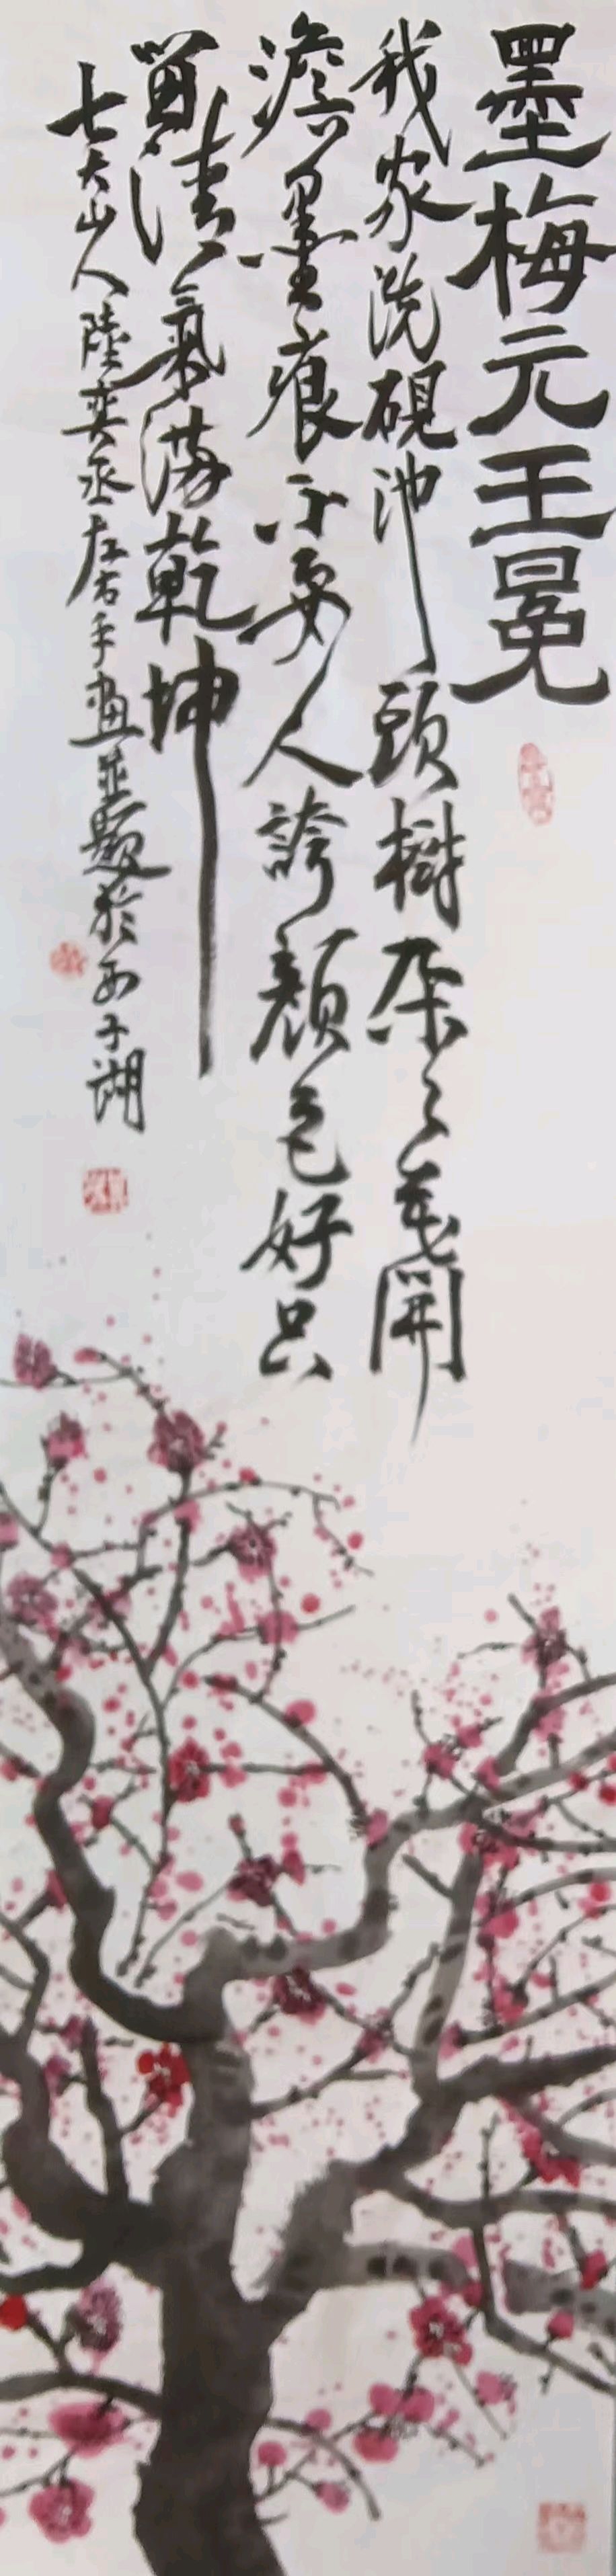 墨梅元王冕
我家洗硯池頭樹朵々花開
澹墨痕不要人誇顏色好只
留清氣滿乾坤
七大山人陸奕丞左右手畫並題於西子湖